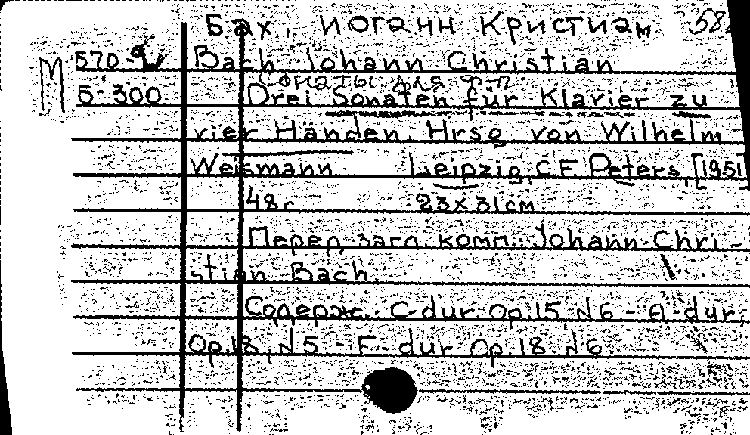 Бах, Иоганн Кристиан 58
570-9 Bach Johann Christian
М Сонаты для ф-п
Б-300 Drei Sonaten für Klavier zu
vier Händen. Hrsg. von Wilhelm
Weismann Leipzig, C.F. Peters, [1951]
48 с. 23x31 см
Перед загл. комп.: Johann Chri-
stian Bach.
Содерж.: C-dur Op.15, N6 - A-dur,
Op.18, N5 - F-dur Op.18 N6